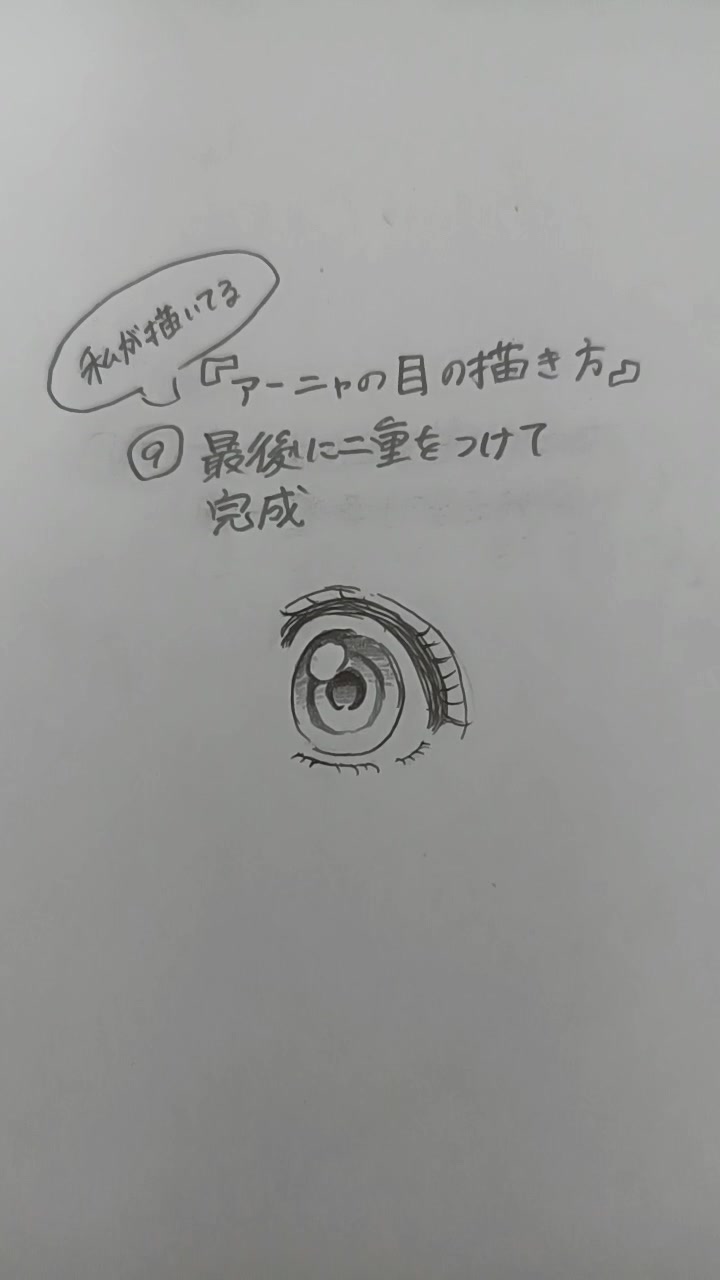 私が描いてる
『アーニャの目の描き方』
⑨ 最後に二重をつけて
完成